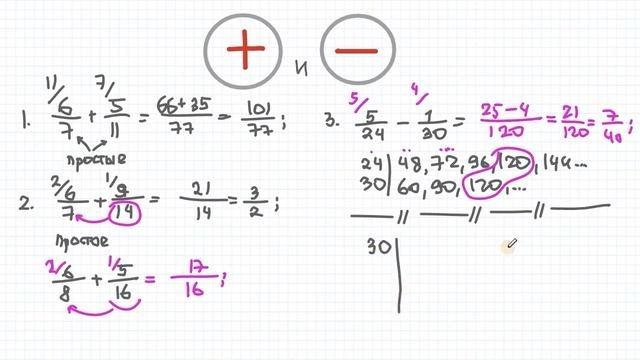 + и −
1. 11/ 6/7 + 7/ 5/11 = 66+35/77 = 101/77;
простые
2. 2/ 6/7 + 1/ 9/14 = 21/14 = 3/2;
простое
2/ 6/8 + 1/ 5/16 = 17/16;
3. 5/ 5/24 − 4/ 1/30 = 25−4/120 = 21/120 = 7/40;
24 | 48, 72, 96, 120, 144...
30 | 60, 90, 120, ...
30 |